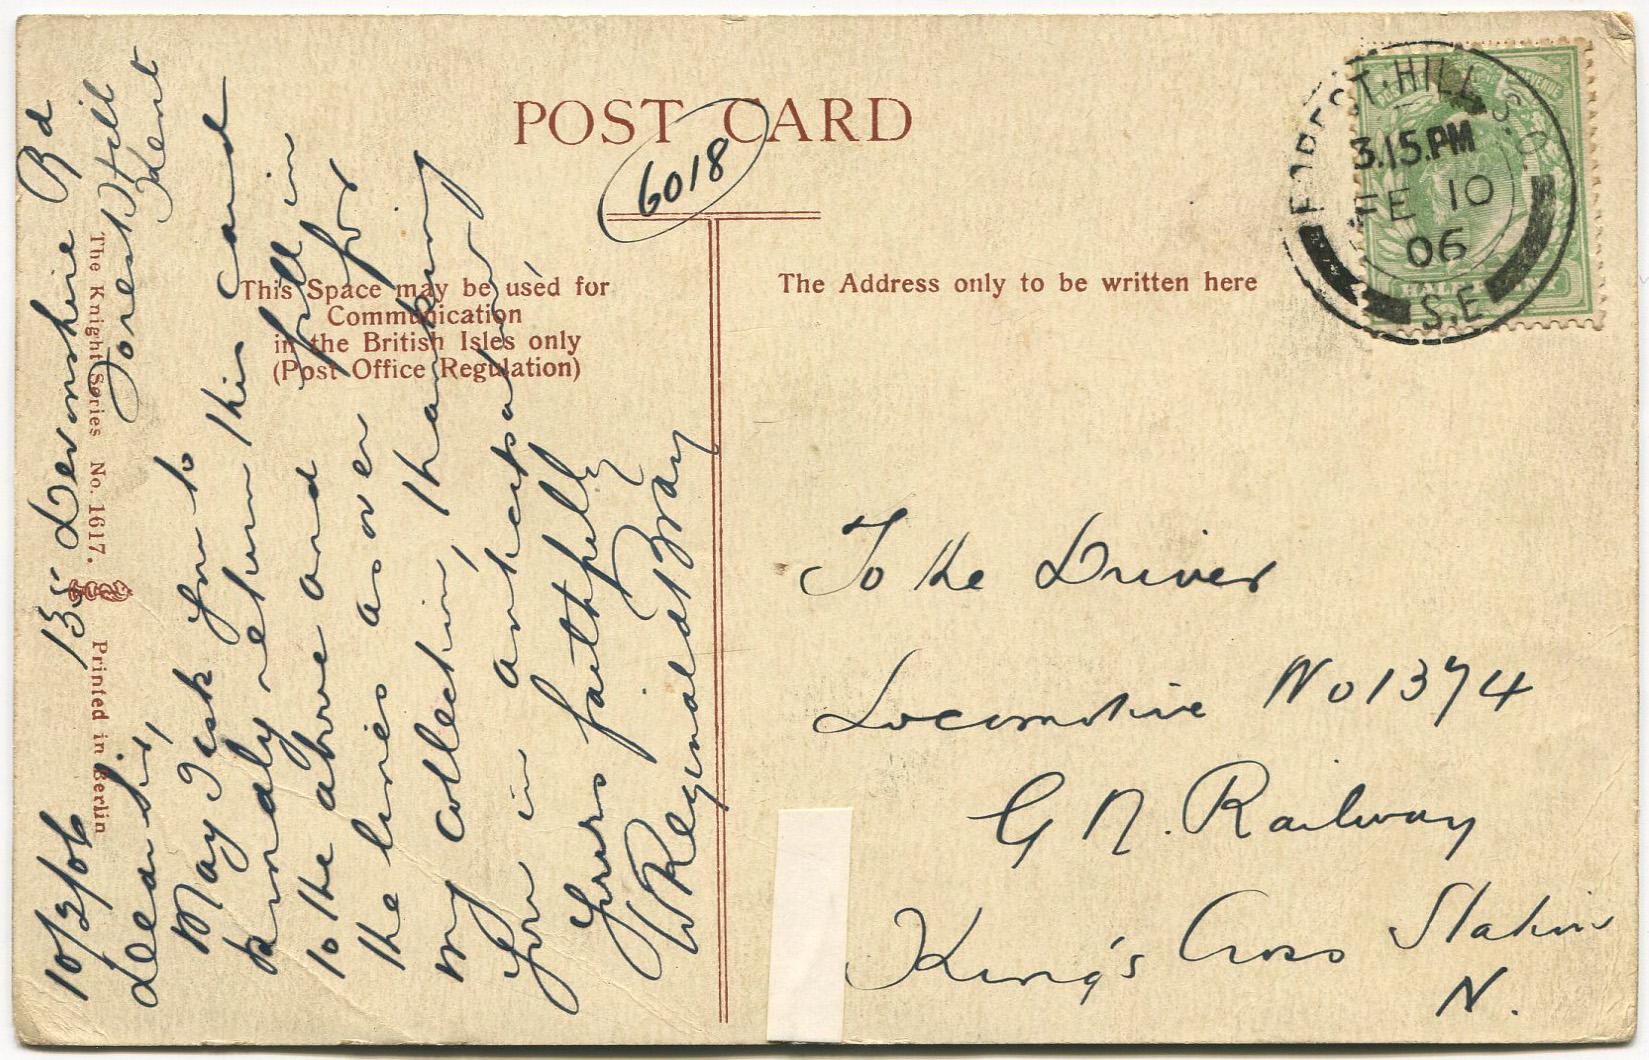 POST CARD
6018
This Space may be used for
Communication
in the British Isles only
(Post Office Regulation)
The Address only to be written here
FOREST·HILL S.O.
3.15.PM
FE 10
06
S.E
HALF PENNY
The Knight Series No. 1617.
Printed in Berlin
10/2/06
135 Devonshire Rd
Forest Hill
Kent
Dear Sir,
May I ask you to
kindly return this card
to the above and fill in
the lines as over for
my collection, thanking
you in anticipation,
Yours faithfully
W Reginald Bray
To the Driver
Locomotive No 1374
G N. Railway
King's Cross Station
N.